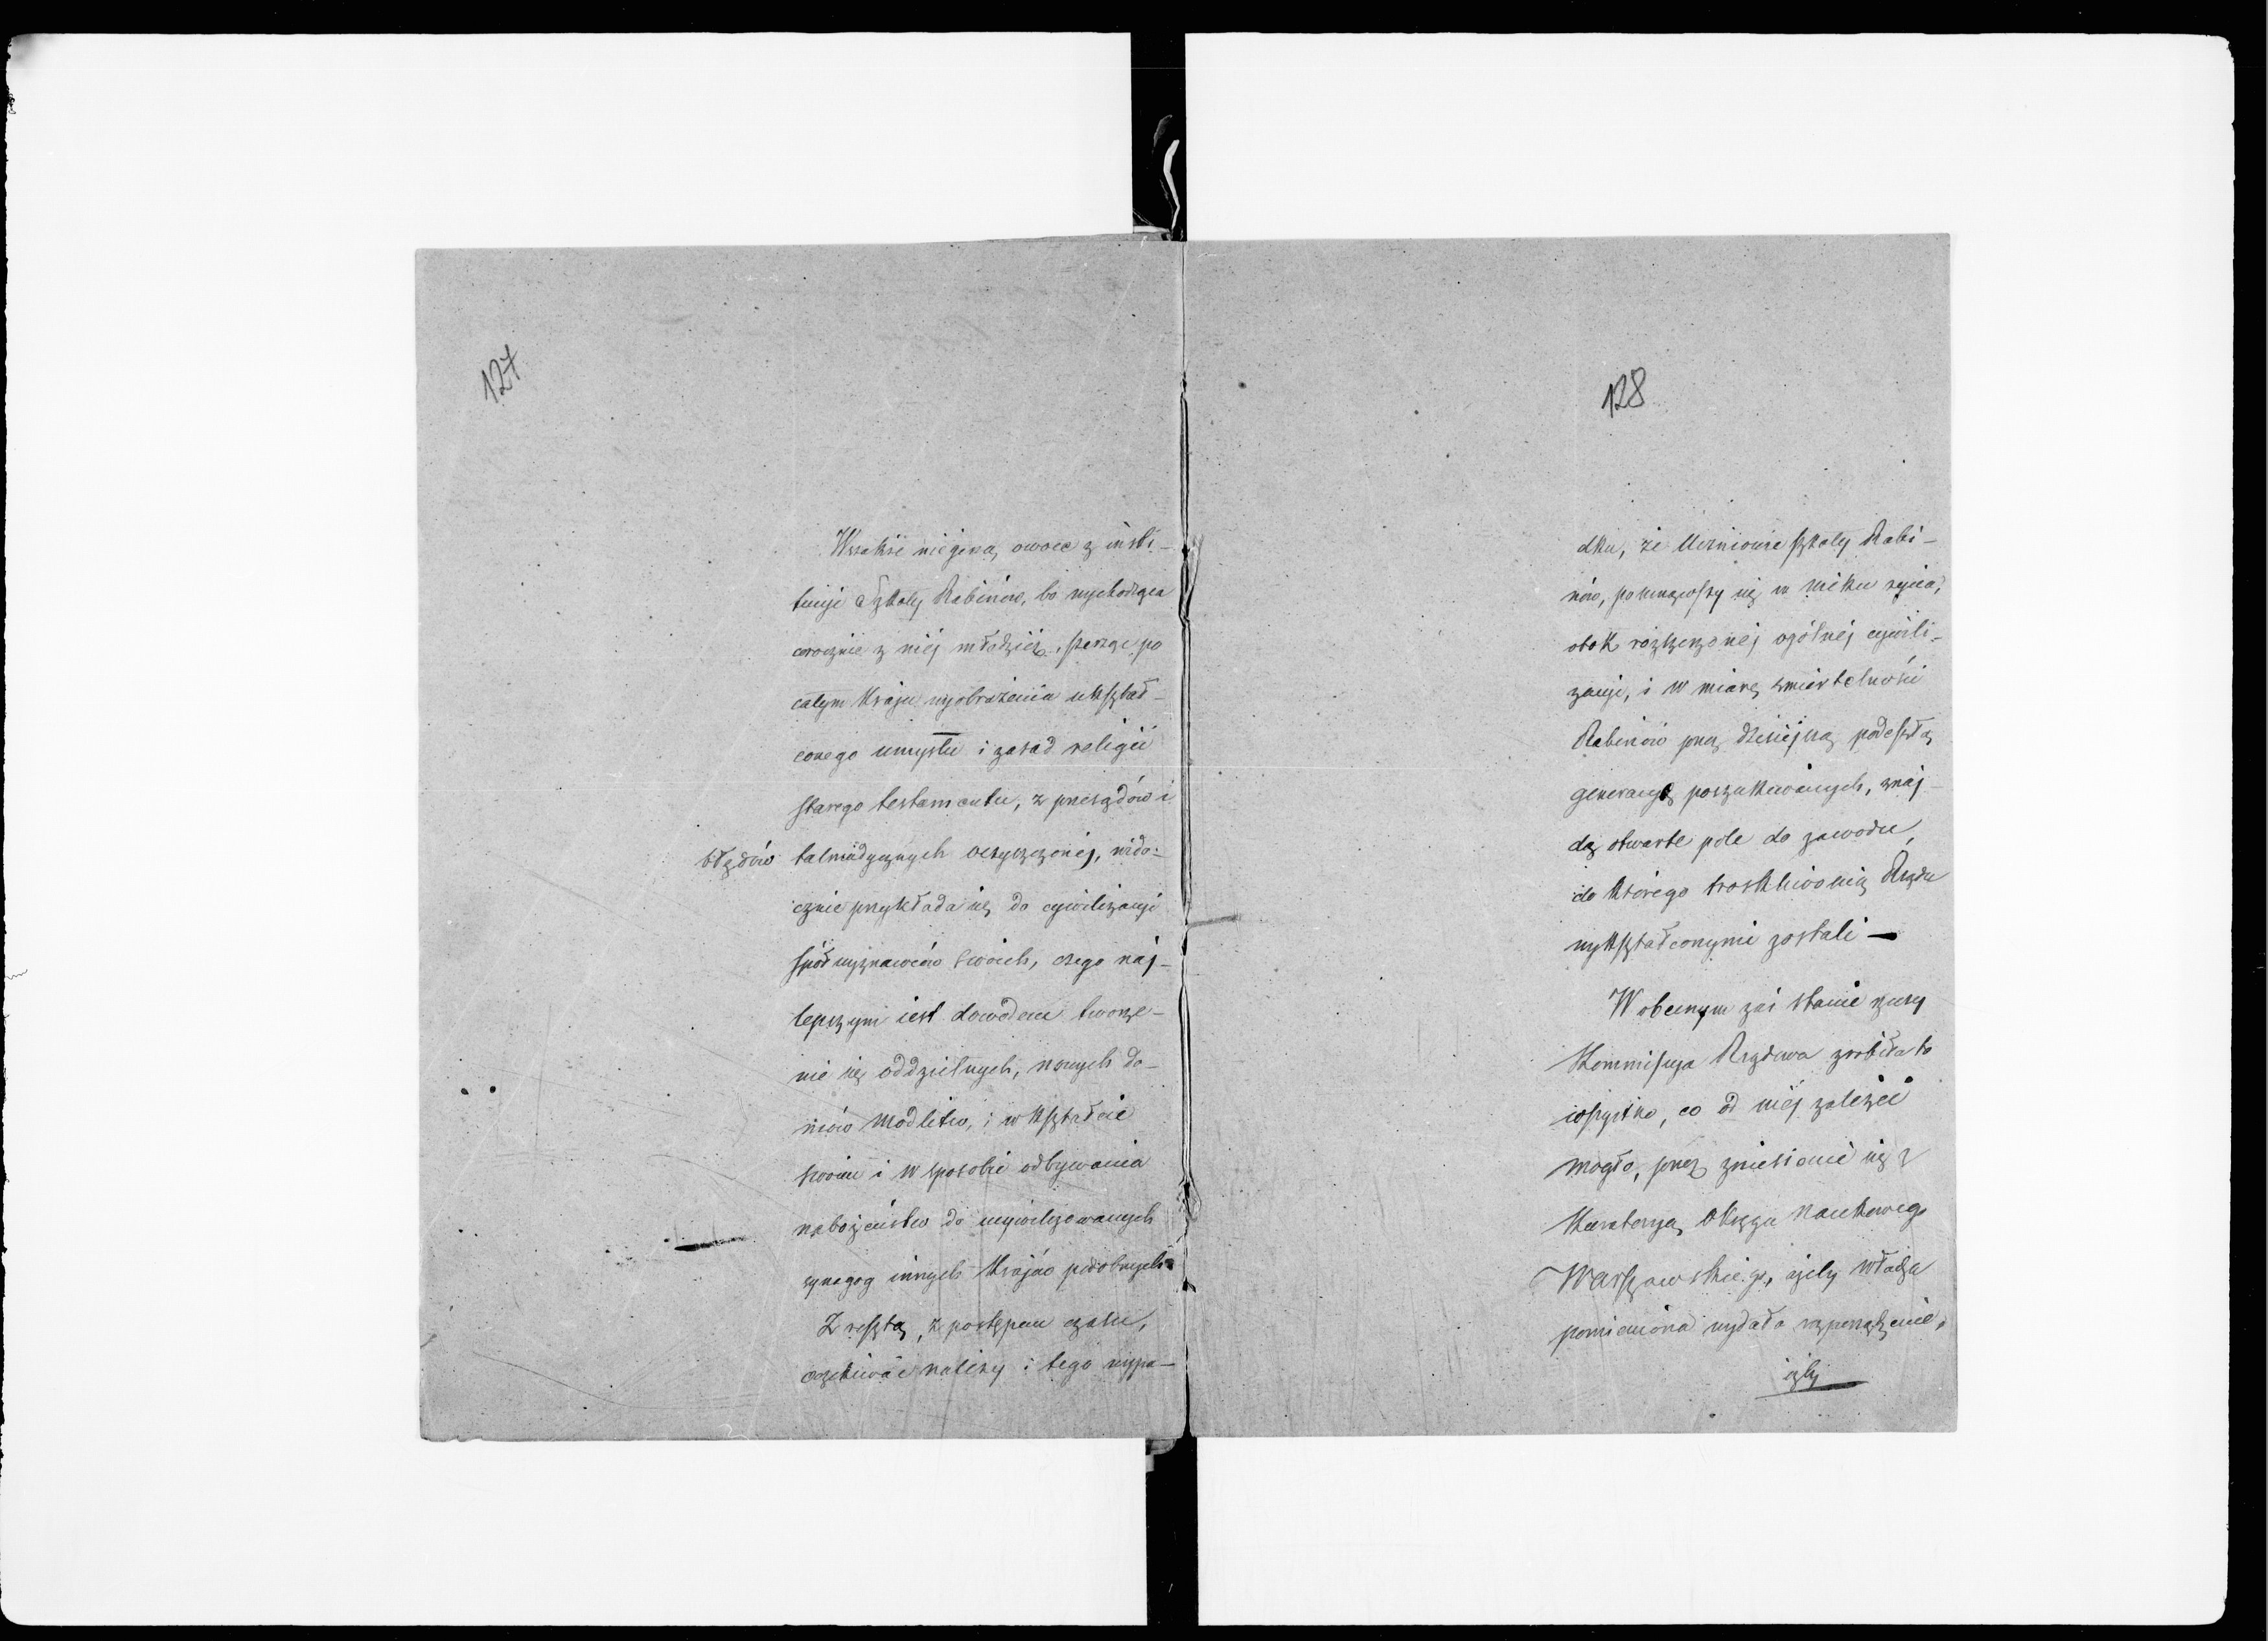 127
Wszakże nie giną owoce z insty-
tucji Szkoły Rabinów, bo wychodząca
corocznie z niéj młodzież, szerząc po
całym Kraju wyobrażenia ukształ-
conego umysłu i zasad religii
starego testamentu, z przesądów i
błędów talmudycznych oczyszczonéj, wido-
cznie przykłada się do cywilizacyi
spółwyznawców swoich, czego naj-
lepszym iest dowodem tworze-
nie się oddzielnych, nowych do-
mów modlitw, i w kształcie
swoim i w sposobie odbywania
nabożeństw do ucywilizowanych
synagog innych Krajów podobnych
Z resztą, z postępem czasu,
oczekiwać należy i tego wypa-
128
dku, że Uczniowie szkoły Rabi-
nów, posunąwszy się w wieku życia,
obok rozszerzonéj ogólnéj cywili-
zacyi, i w miarę śmiertelności
Rabinów przez dzisiejszą podeszłą
generacyę poszukiwanych, znaj-
dą otwarte pole do zawodu,
do którego troskliwością Rządu
wykształconymi zostali —
W obecnym zaś stanie rzeczy
Kommissya Rządowa zrobiła to
wszystko, co od niéj zależéć
mogło, przez zniesienie się z
Kuratoryą Okręgu Naukowego
Warszawskiego, ażeby władza
pomieniona wydała rozporządzenie,
iżby